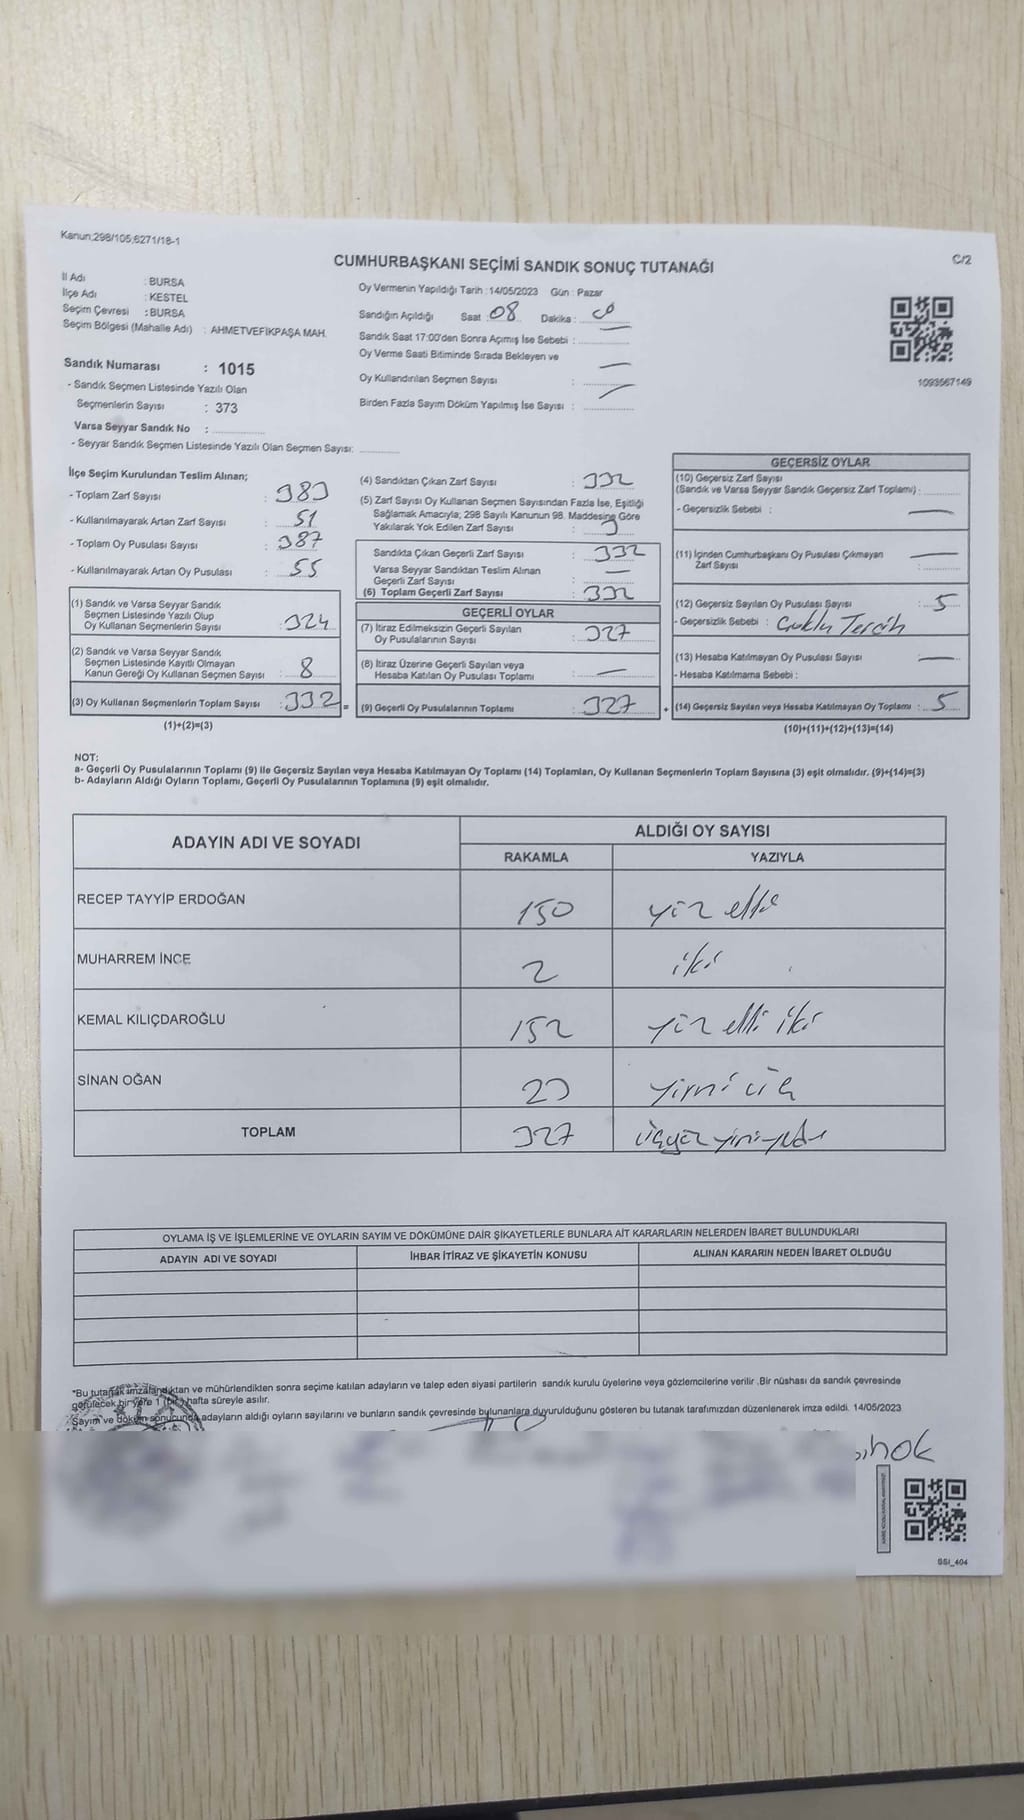 Kanun;298/105,6271/18-1
C/2
CUMHURBAŞKANI SEÇİMİ SANDIK SONUÇ TUTANAĞI
İl Adı : BURSA
İlçe Adı : KESTEL
Seçim Çevresi : BURSA
Seçim Bölgesi (Mahalle Adı) : AHMETVEFİKPAŞA MAH.
Sandık Numarası : 1015
- Sandık Seçmen Listesinde Yazılı Olan
Seçmenlerin Sayısı : 373
Varsa Seyyar Sandık No :
- Seyyar Sandık Seçmen Listesinde Yazılı Olan Seçmen Sayısı:
Oy Vermenin Yapıldığı Tarih :14/05/2023 Gün : Pazar
Sandığın Açıldığı Saat : 08 Dakika :
Sandık Saat 17:00'den Sonra Açımış İse Sebebi :
Oy Verme Saati Bitiminde Sırada Bekleyen ve
Oy Kullandırılan Seçmen Sayısı :
Birden Fazla Sayım Döküm Yapılmış İse Sayısı :
1093567149
İlçe Seçim Kurulundan Teslim Alınan;
- Toplam Zarf Sayısı : 383
- Kullanılmayarak Artan Zarf Sayısı : 51
- Toplam Oy Pusulası Sayısı : 387
- Kullanılmayarak Artan Oy Pusulası : 55
(1) Sandık ve Varsa Seyyar Sandık
Seçmen Listesinde Yazılı Olup
Oy Kullanan Seçmenlerin Sayısı : 324
(2) Sandık ve Varsa Seyyar Sandık
Seçmen Listesinde Kayıtlı Olmayan
Kanun Gereği Oy Kullanan Seçmen Sayısı : 8
(3) Oy Kullanan Seçmenlerin Toplam Sayısı : 332 =
(1)+(2)=(3)
(4) Sandıktan Çıkan Zarf Sayısı : 332
(5) Zarf Sayısı Oy Kullanan Seçmen Sayısından Fazla İse, Eşitliği
Sağlamak Amacıyla; 298 Sayılı Kanunun 98. Maddesine Göre
Yakılarak Yok Edilen Zarf Sayısı :
Sandıkta Çıkan Geçerli Zarf Sayısı : 332
Varsa Seyyar Sandıktan Teslim Alınan
Geçerli Zarf Sayısı : —
(6) Toplam Geçerli Zarf Sayısı : 332
GEÇERLİ OYLAR
(7) İtiraz Edilmeksizin Geçerli Sayılan
Oy Pusulalarının Sayısı : 327
(8) İtiraz Üzerine Geçerli Sayılan veya
Hesaba Katılan Oy Pusulası Toplamı : —
(9) Geçerli Oy Pusulalarının Toplamı : 327 +
GEÇERSİZ OYLAR
(10) Geçersiz Zarf Sayısı
(Sandık ve Varsa Seyyar Sandık Geçersiz Zarf Toplamı) :
- Geçersizlik Sebebi : —
(11) İçinden Cumhurbaşkanı Oy Pusulası Çıkmayan
Zarf Sayısı : —
(12) Geçersiz Sayılan Oy Pusulası Sayısı : 5
- Geçersizlik Sebebi : Çoklu Tercih
(13) Hesaba Katılmayan Oy Pusulası Sayısı : —
- Hesaba Katılmama Sebebi :
(14) Geçersiz Sayılan veya Hesaba Katılmayan Oy Toplamı : 5
(10)+(11)+(12)+(13)=(14)
NOT:
a- Geçerli Oy Pusulalarının Toplamı (9) ile Geçersiz Sayılan veya Hesaba Katılmayan Oy Toplamı (14) Toplamları, Oy Kullanan Seçmenlerin Toplam Sayısına (3) eşit olmalıdır. (9)+(14)=(3)
b- Adayların Aldığı Oyların Toplamı, Geçerli Oy Pusulalarının Toplamına (9) eşit olmalıdır.
ADAYIN ADI VE SOYADI
ALDIĞI OY SAYISI
RAKAMLA YAZIYLA
RECEP TAYYİP ERDOĞAN 150 yüz elli
MUHARREM İNCE 2 iki
KEMAL KILIÇDAROĞLU 152 yüz elli iki
SİNAN OĞAN 23 yirmi üç
TOPLAM 327 üçyüz yirmi yedi
OYLAMA İŞ VE İŞLEMLERİNE VE OYLARIN SAYIM VE DÖKÜMÜNE DAİR ŞİKAYETLERLE BUNLARA AİT KARARLARIN NELERDEN İBARET BULUNDUKLARI
ADAYIN ADI VE SOYADI İHBAR İTİRAZ VE ŞİKAYETİN KONUSU ALINAN KARARIN NEDEN İBARET OLDUĞU
*Bu tutanak imzalandıktan ve mühürlendikten sonra seçime katılan adayların ve talep eden siyasi partilerin sandık kurulu üyelerine veya gözlemcilerine verilir .Bir nüshası da sandık çevresinde
görülecek bir yere 1 (bir) hafta süreyle asılır.
Sayım ve döküm sonucunda adayların aldığı oyların sayılarını ve bunların sandık çevresinde bulunanlara duyurulduğunu gösteren bu tutanak tarafımızdan düzenlenerek imza edildi. 14/05/2023
SSI_404